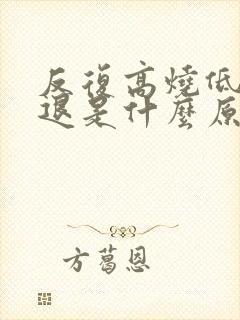 反復高燒低
退是什麼原
方葛恩